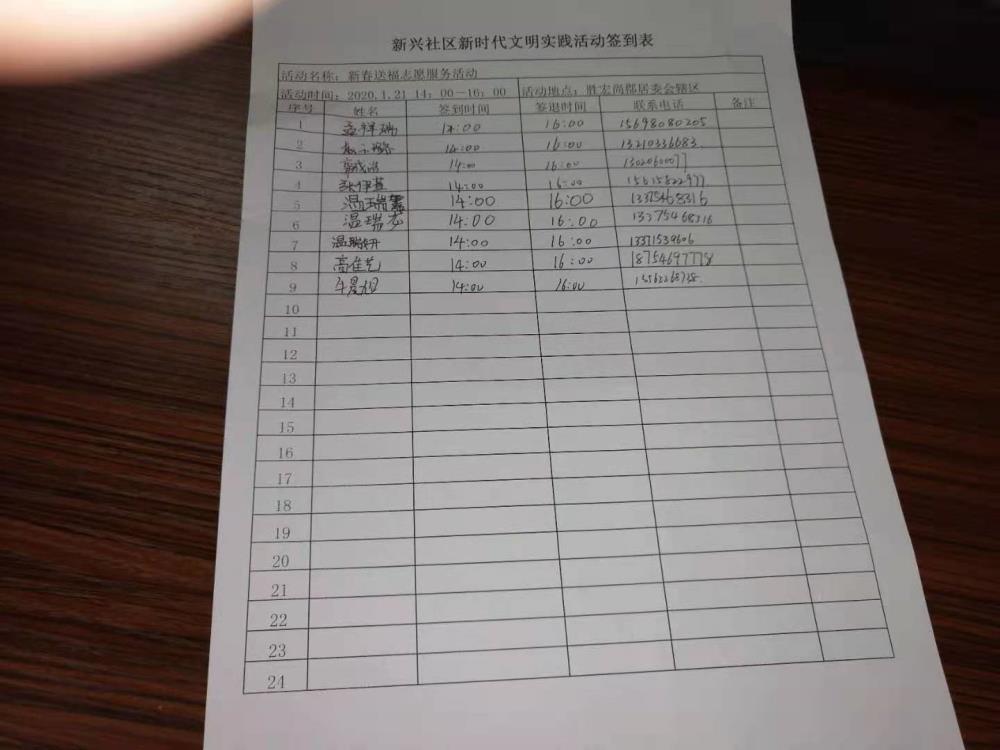 新兴社区新时代文明实践活动签到表
活动名称：新春送福志愿服务活动
活动时间：2020.1.21 14：00－16：00 活动地点：胜宏尚郡居委会辖区
序号 姓名 签到时间 签退时间 联系电话 备注
1 孟祥瑞 14:00 16:00 15698080205
2 14:00 16:00 13210336683
3 14:00 16:00 13020600077
4 张伊莲 14:00 16:00 15615822977
5 温瑞馨 14:00 16:00 13375468316
6 温瑞 14:00 16:00 13375468316
7 温瑞妍 14:00 16:00 13371539606
8 高佳艺 14:00 16:00 18754697778
9 14:00 16:00
10
11
12
13
14
15
16
17
18
19
20
21
22
23
24